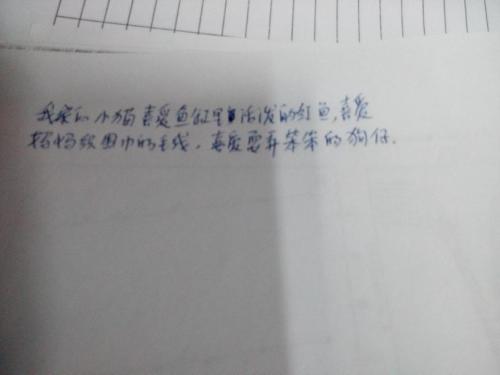 我家的小猫喜爱鱼缸里活泼的红鱼,喜爱
妈妈织围巾的毛线,喜爱耍弄笨笨的狗仔.